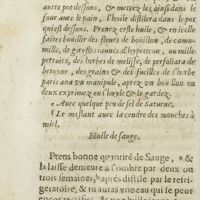 autre pot dessous, & mettez les ainsi dans le
four avec le pain, l'huile distilera dans le pot
qui est dessous. Prenez ceste huile, & en icelle
faites bouillir des fleurs de bouillon, de camo-
mille, de girofles iaunes, d'hypericon, ou mille
pertruis, des herbes de melisse, de persoliata de
betoyne, des grains & des fueilles de l'herbe
paris ana vn manipule, apres vn bouillon ou
deux exprimez en l'huyle & le gardez.
Avec quelque peu de sel de Saturne.
Le meslant avec la cendre des mouches à
miel.
Huile de sauge.
Prens bonne quantité de Sauge, & &
la laisse demeure a l'ombre par deux ou
trois semaines, apres distile par le refri-
geratoire, & tu auras vne eau qui se peut